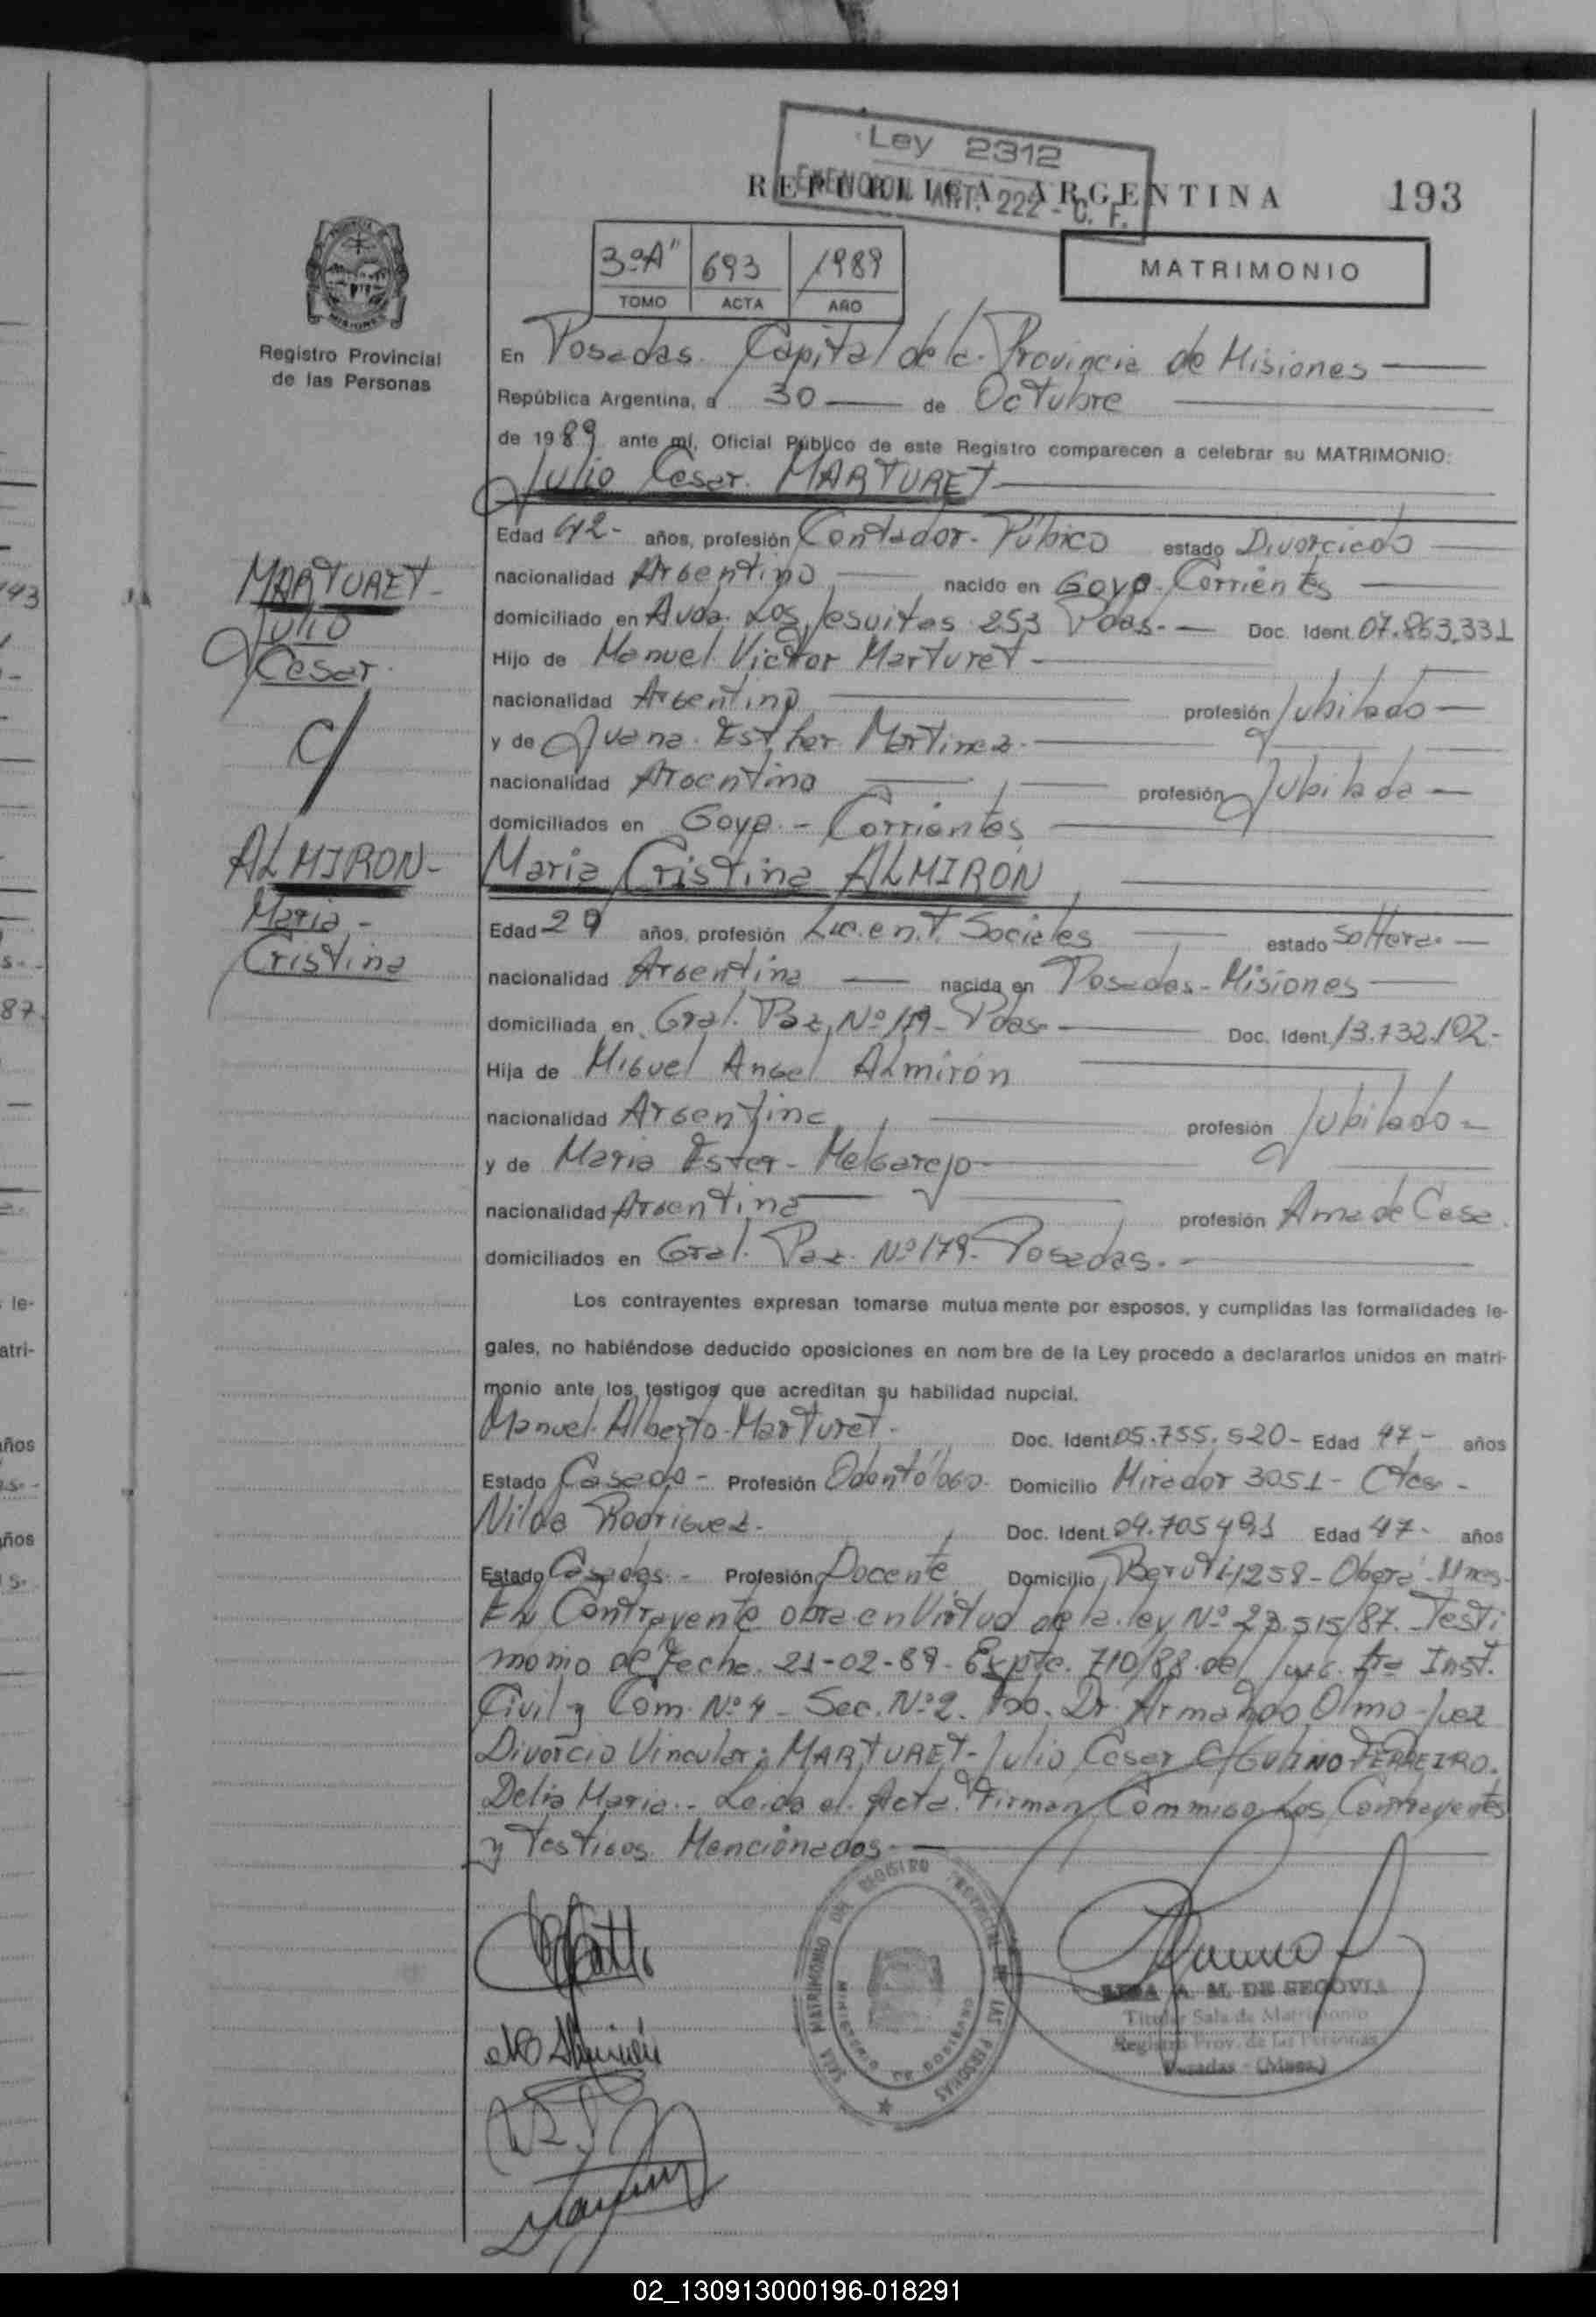 Ley 2312
EXENCION ART. 222 - C. F.
REPUBLICA ARGENTINA 193
3º"A" 693 1989
TOMO ACTA AÑO
MATRIMONIO
Registro Provincial
de las Personas
En Posadas. Capital de la Provincia de Misiones
República Argentina, a 30 de Octubre
de 1989 ante mí, Oficial Público de este Registro comparecen a celebrar su MATRIMONIO:
Julio Cesar. MARTURET
Edad 42- años, profesión Contador Público estado Divorciado
nacionalidad Argentino nacido en Goya-Corrientes
domiciliado en Avda. Los Jesuitas 253 Pdas.- Doc. Ident. 07.863.331
Hijo de Manuel Victor Marturet
nacionalidad Argentino profesión Jubilado
y de Juana Esther Martinez.
nacionalidad Argentina profesión Jubilada
domiciliados en Goya.- Corrientes
MARTURET-
Julio
Cesar.
c/
ALMIRON-
Maria-
Cristina
Maria Cristina ALMIRON
Edad 29 años, profesión Licen.T. Sociales estado Soltera.
nacionalidad Argentina nacida en Posadas-Misiones
domiciliada en Gral. Paz Nº 179- Pdas- Doc. Ident. 13.732.102-
Hija de Miguel Angel Almirón
nacionalidad Argentino profesión Jubilado
y de Maria Ester- Melgarejo
nacionalidad Argentina profesión Ama de Casa.
domiciliados en Gral. Paz Nº 179- Posadas.
Los contrayentes expresan tomarse mutuamente por esposos, y cumplidas las formalidades le-
gales, no habiéndose deducido oposiciones en nombre de la Ley procedo a declararlos unidos en matri-
monio ante los testigos que acreditan su habilidad nupcial.
Manuel Alberto Marturet- Doc. Ident. 05.755.520- Edad 47- años
Estado Casado- Profesión Odontólogo. Domicilio Mirador 3051- Ctes-
Nilda Rodriguez- Doc. Ident. 04.705491 Edad 47- años
Estado Casadas.- Profesión Docente Domicilio Beruti-1258- Oberá-Mnes-
El Contrayente obra en Virtud de la ley Nº 23.515/87. Testi
monio de fecha 21-02-89- Expte. 710/88 del Juzg. 1ra Inst.
Civil y Com. Nº 4- Sec. Nº 2. Fdo. Dr. Armando Olmo-Juez
Divorcio Vincular: MARTURET- Julio Cesar c/ GULINO FERREIRO.
Delia Maria.- Leida el Acta. Firman Conmigo Los Contrayentes
y Testigos Mencionados.
SALA MATRIMONIO DEL REGISTRO PROVINCIAL DE LAS PERSONAS
MINISTERIO DE GOBIERNO
A. M. DE SEGOVIA
Titular Sala de Matrimonio
Registro Prov. de las Personas
Posadas - (Mnes.)
02_130913000196-018291